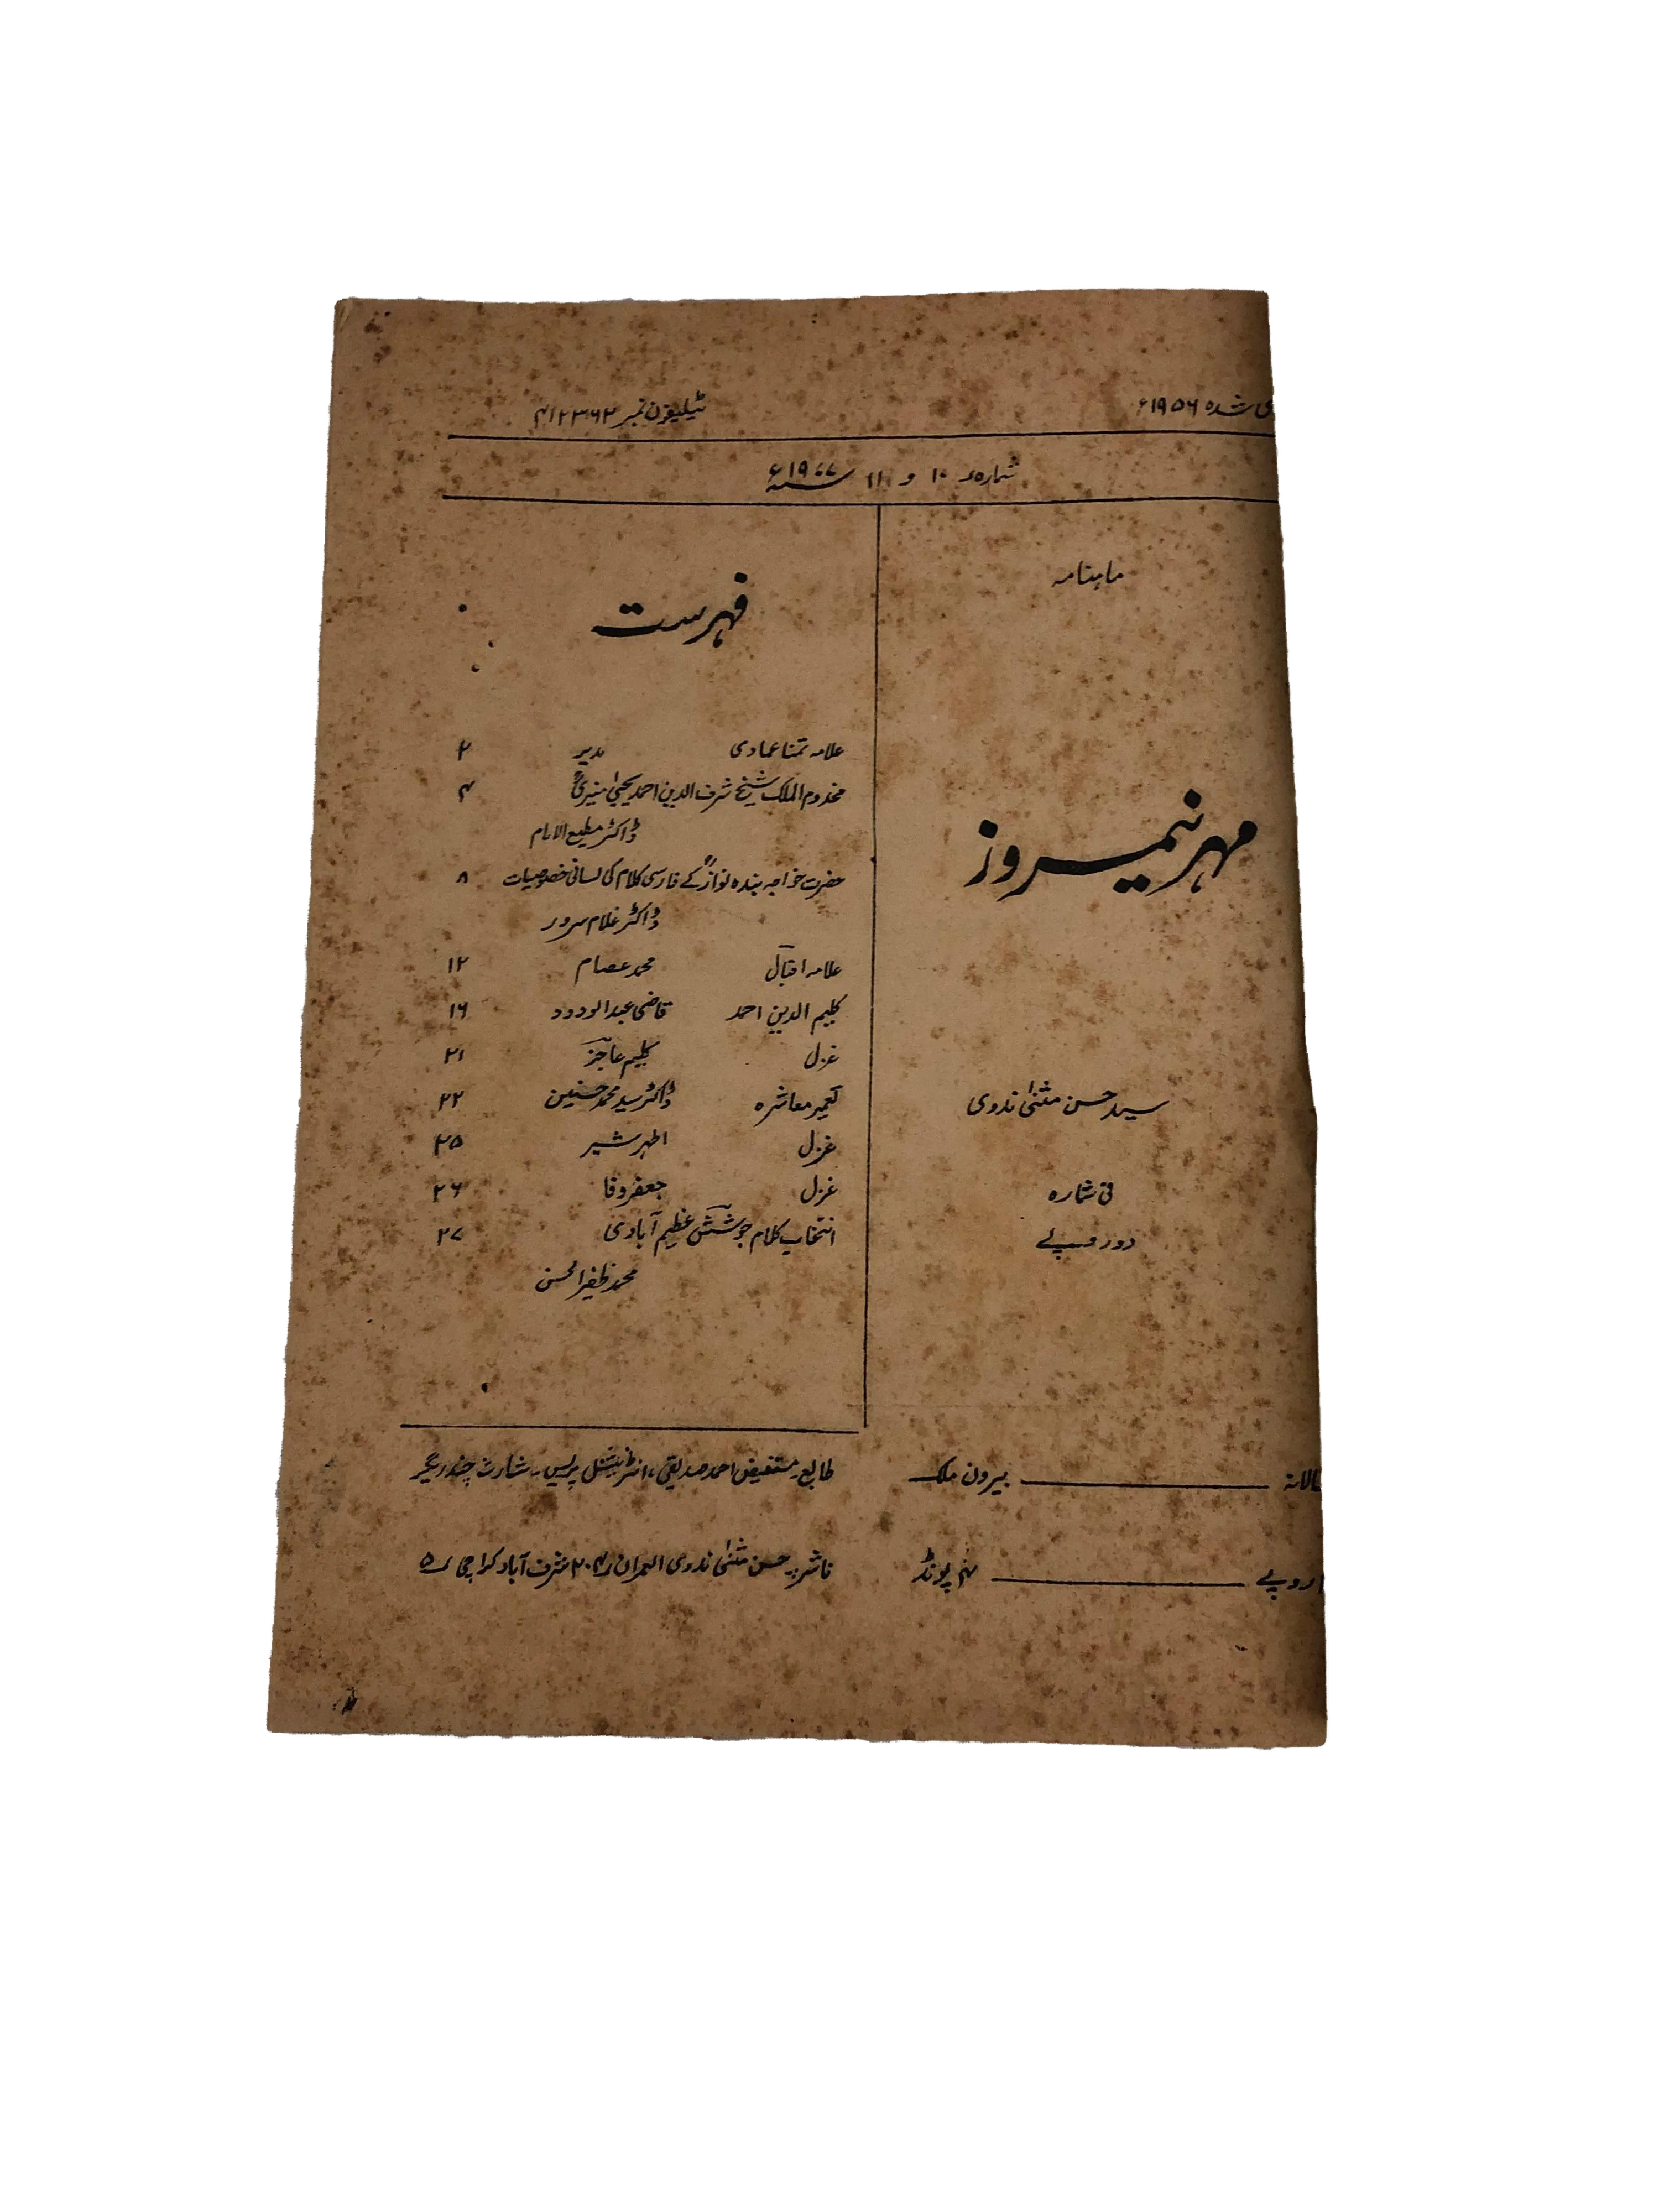 شدہ ۱۹۵۶ء
ٹیلیفون نمبر ۴۱۲۳۶۲
شمارہ ۱۰ و ۱۱ سنہ ۱۹۷۷ء
ماہنامہ
مہر نیمروز
سید حسن مثنیٰ ندوی
فی شمارہ
دو روپے
بیرون ملک
روپے ۴ پونڈ
فہرست
علامہ تمنا عمادی مدیر ۲
مخدوم الملک شیخ شرف الدین احمد یحییٰ منیریؒ ۴
ڈاکٹر مطیع الامام
حضرت خواجہ بندہ نوازؒ کے فارسی کلام کی لسانی خصوصیات ۸
ڈاکٹر غلام سرور
علامہ اقبال محمد عصام ۱۲
کلیم الدین احمد قاضی عبدالودود ۱۶
غزل کلیم عاجز ۲۱
تعمیر معاشرہ ڈاکٹر سید محمد حسنین ۲۲
غزل اطہر شیر ۲۵
غزل جعفر وفا ۲۶
انتخاب کلام جوشش عظیم آبادی ۲۷
محمد ظفیر الحسن
طابع۔ مستفیض احمد صدیقی، انٹرنیشنل پریس۔ شارٹ چندریگر
ناشر۔ حسن مثنیٰ ندوی العمران ۲۰۴ شرف آباد کراچی ۵